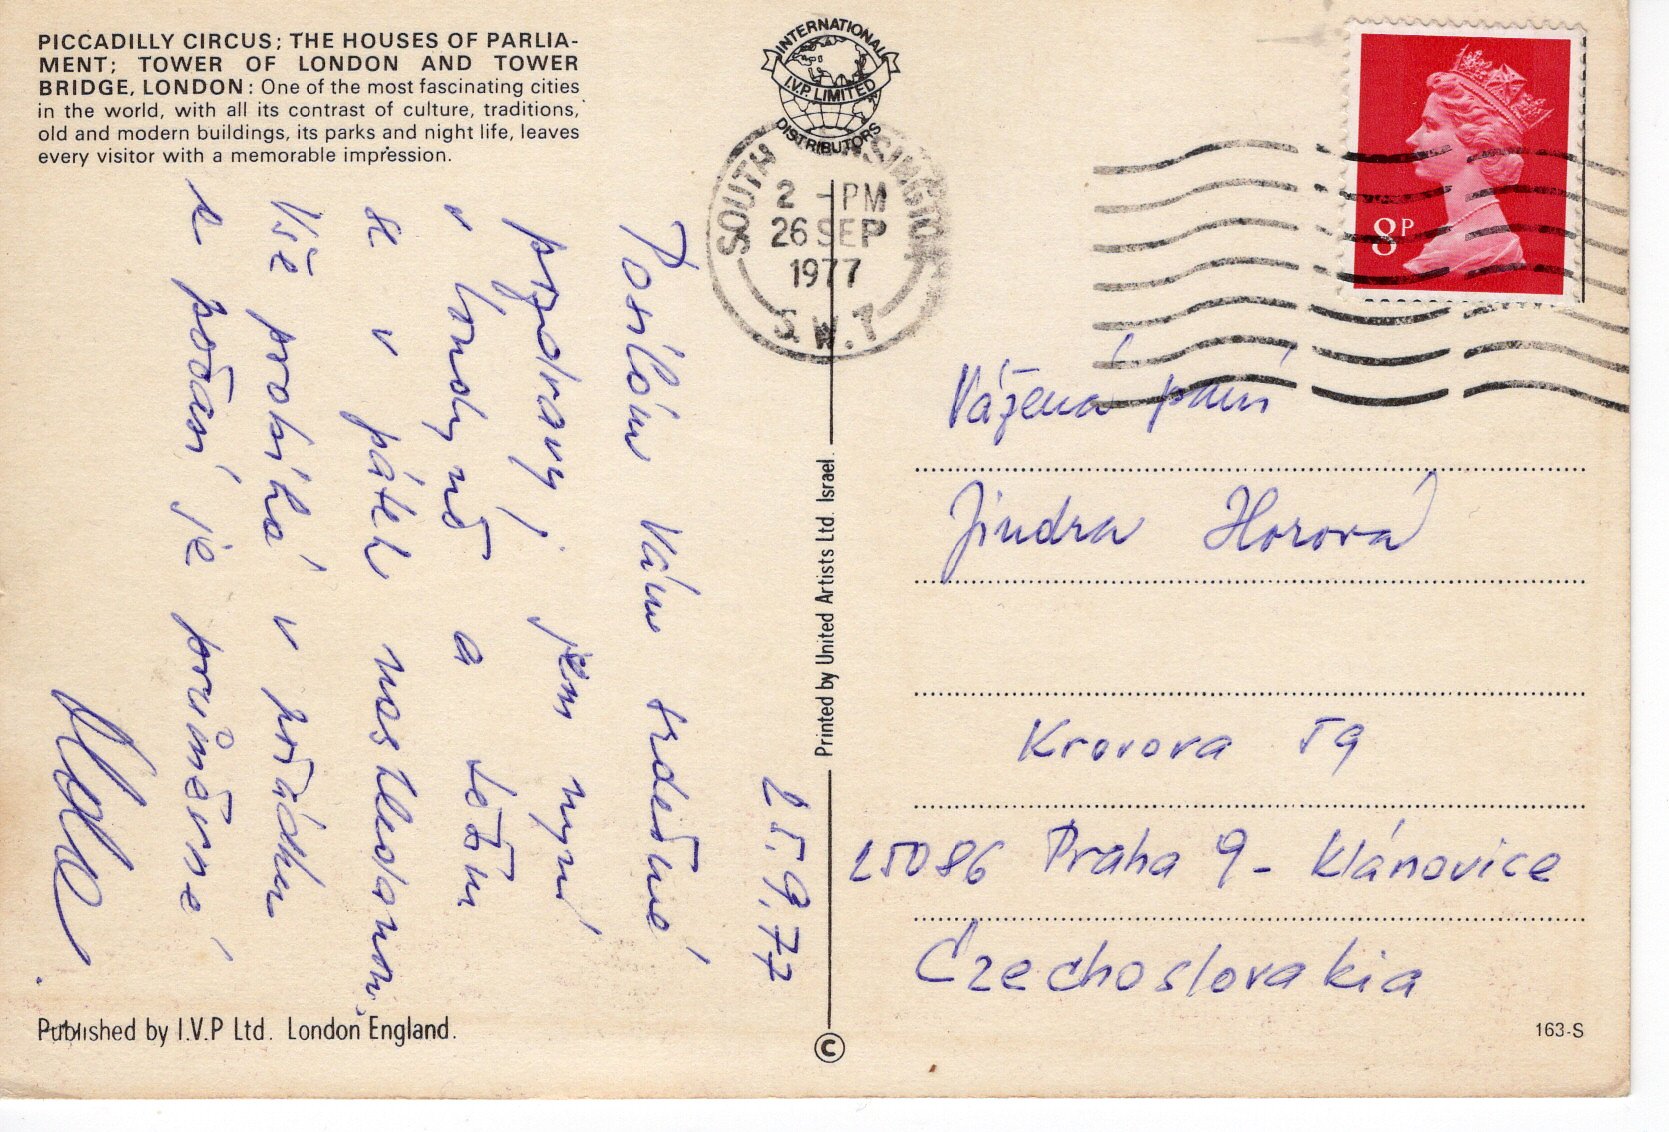 PICCADILLY CIRCUS; THE HOUSES OF PARLIA-
MENT; TOWER OF LONDON AND TOWER
BRIDGE, LONDON: One of the most fascinating cities
in the world, with all its contrast of culture, traditions,
old and modern buildings, its parks and night life, leaves
every visitor with a memorable impression.
INTERNATIONAL
I.V.P. LIMITED
DISTRIBUTORS
SOUTH KENSINGTON
2 - PM
26 SEP
1977
S.W.7
8P
25.9.77
Posílám Vám srdečné
pozdravy, jsem nyní
v Londýně a vrátím
se v pátek
Vše probíhá v pořádku
a počasí je průměrné
Printed by United Artists Ltd. Israel.
Vážená paní
Jindra Horová
Krovova 59
25086 Praha 9 - Klánovice
Czechoslovakia
Published by I.V.P Ltd. London England.
©
163-S